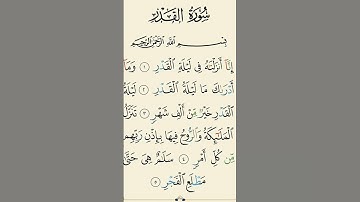 سُورَةُ القَدْرِ
بِسْمِ اللَّهِ الرَّحْمَٰنِ الرَّحِيمِ
إِنَّا أَنزَلْنَٰهُ فِى لَيْلَةِ ٱلْقَدْرِ ١ وَمَا
أَدْرَىٰكَ مَا لَيْلَةُ ٱلْقَدْرِ ٢ لَيْلَةُ
ٱلْقَدْرِ خَيْرٌ مِّنْ أَلْفِ شَهْرٍ ٣ تَنَزَّلُ
ٱلْمَلَٰٓئِكَةُ وَٱلرُّوحُ فِيهَا بِإِذْنِ رَبِّهِم
مِّن كُلِّ أَمْرٍ ٤ سَلَٰمٌ هِىَ حَتَّىٰ
مَطْلَعِ ٱلْفَجْرِ ٥